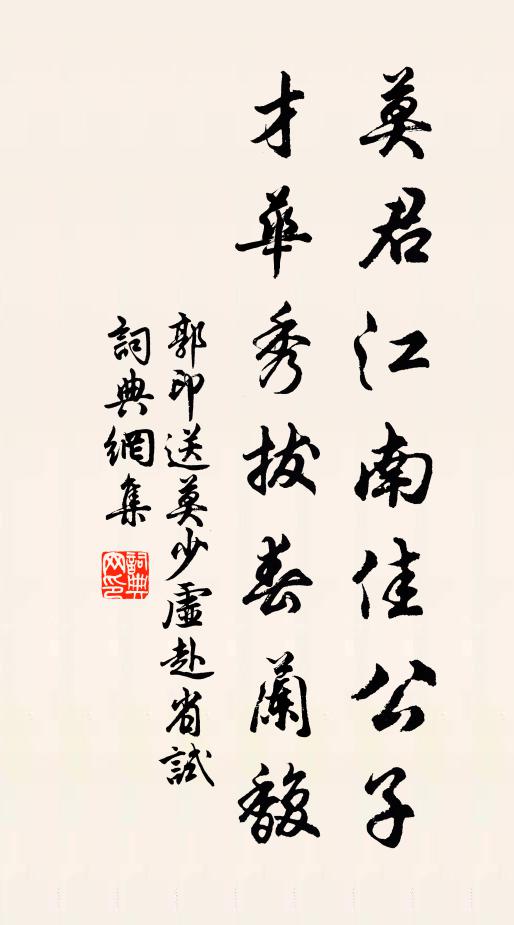 莫君江南佳公子
才華秀拔春蘭馥
郭印送莫少虛赴省試
詞典網集
詞典網印